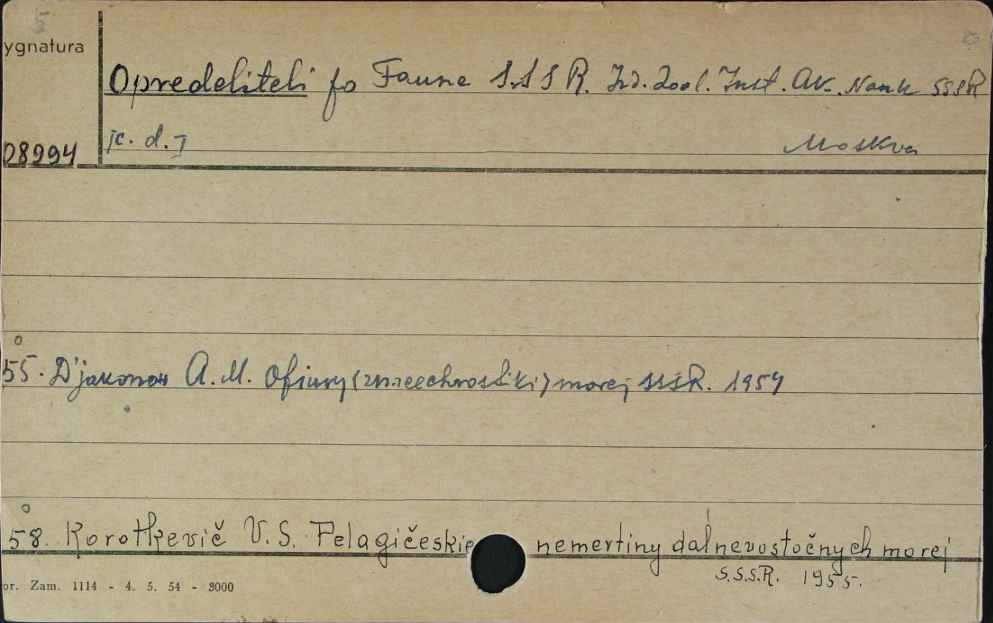 ygnatura
Opredeliteli po Faune S.S.S.R. Izd. Zool. Inst. Ak. Nauk SSSR
D8994 [c. d.] Moskva
55. D'jakonov A. M. Ofiury (zmeechvostki) morej SSSR. 1954
58. Korotkevič V. S. Pelagičeskie nemertiny dal'nevostočnych morej
S.S.S.R. 1955.
or. Zam. 1114 - 4. 5. 54 - 3000